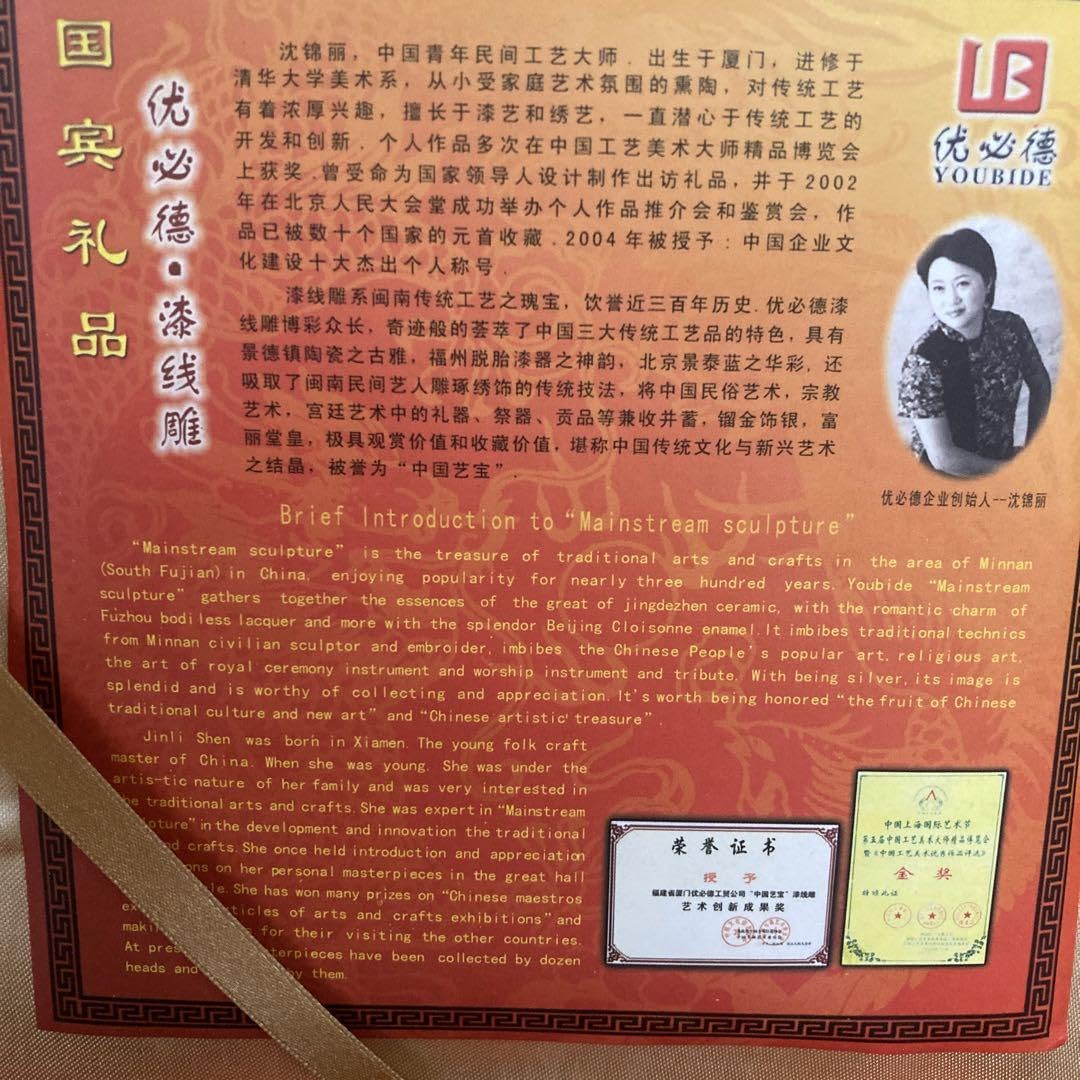 国宾礼品
优必德·漆线雕
沈锦丽，中国青年民间工艺大师．出生于厦门，进修于
清华大学美术系，从小受家庭艺术氛围的熏陶，对传统工艺
有着浓厚兴趣，擅长于漆艺和绣艺，一直潜心于传统工艺的
开发和创新．个人作品多次在中国工艺美术大师精品博览会
上获奖．曾受命为国家领导人设计制作出访礼品，并于2002
年在北京人民大会堂成功举办个人作品推介会和鉴赏会，作
品已被数十个国家的元首收藏．2004年被授予：中国企业文
化建设十大杰出个人称号．
漆线雕系闽南传统工艺之瑰宝，饮誉近三百年历史.优必德漆
线雕博彩众长，奇迹般的荟萃了中国三大传统工艺品的特色，具有
景德镇陶瓷之古雅，福州脱胎漆器之神韵，北京景泰蓝之华彩，还
吸取了闽南民间艺人雕琢绣饰的传统技法，将中国民俗艺术，宗教
艺术，宫廷艺术中的礼器、祭器、贡品等兼收并蓄，镏金饰银，富
丽堂皇，极具观赏价值和收藏价值，堪称中国传统文化与新兴艺术
之结晶，被誉为“中国艺宝”．
UB
优必德
YOUBIDE
优必德企业创始人--沈锦丽
Brief Introduction to “Mainstream sculpture”
“Mainstream sculpture” is the treasure of traditional arts and crafts in the area of Minnan
(South Fujian) in China, enjoying popularity for nearly three hundred years. Youbide “Mainstream
sculpture” gathers together the essences of the great of jingdezhen ceramic, with the romantic charm of
Fuzhou bodiless lacquer and more with the splendor Beijing Cloisonne enamel. It imbibes traditional technics
from Minnan civilian sculptor and embroider, imbibes the Chinese People's popular art, religious art,
the art of royal ceremony instrument and worship instrument and tribute. With being silver, its image is
splendid and is worthy of collecting and appreciation. It's worth being honored “the fruit of Chinese
traditional culture and new art” and “Chinese artistic' treasure”.
Jinli Shen was born in Xiamen. The young folk craft
master of China. When she was young. She was under the
artis-tic nature of her family and was very interested in
traditional arts and crafts. She was expert in “Mainstream
in the development and innovation the traditional
and crafts. She once held introduction and appreciation
on her personal masterpieces in the great hall
She has won many prizes on “Chinese maestros
articles of arts and crafts exhibitions” and
for their visiting the other countries.
At have been collected by dozen
heads and by them.
荣誉证书
授予
福建省厦门优必德工贸公司“中国艺宝”漆线雕
艺术创新成果奖
中国上海国际艺术节
第五届中国工艺美术大师精品博览会
暨《中国工艺美术优秀作品评选》
金奖
特颁此证